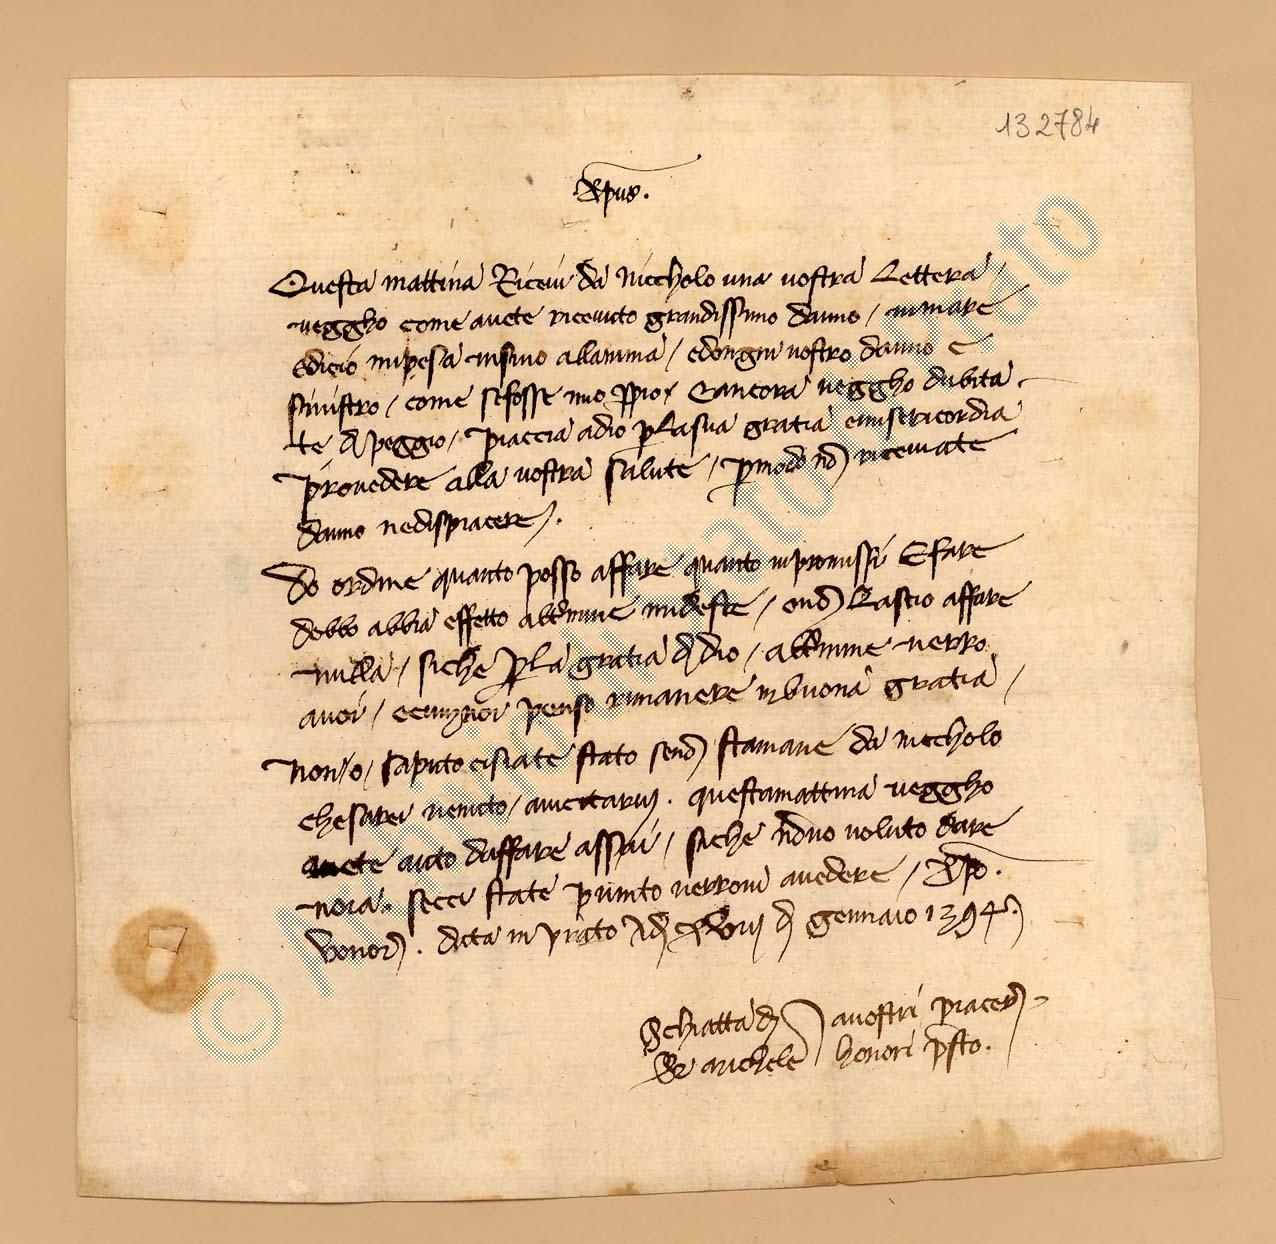 132784
Xpus.
Questa mattina Ricevi da Niccholo una vostra Lettera /
veggho come avete ricevuto grandissimo danno / in mare
e dicio mi pesa insino allanima / e dongni vostro danno e
sinistro / come se fosse mio ppio / E ancora veggho dubita
te di peggio / piaccia a dio p la sua gratia e misericordia
provedere alla vostra salute / p modo nō riceviate
danno ne dispiacere.
Do ordine quanto posso affare quanto inpromissi E fare
debbo abbia effetto al tīmine / Lascio affare
nulla / siche p la gratia di dio / al tīmine verro
avoi / e con voi penso rimanere in buona gratia /
Non / o / saputo ci siate stato senō stamane da niccholo
che sarei venuto / a vicitarvi. questa mattina veggho
avete auto daffare assai / siche nō vo voluto dare
noia. se cci state punto verrovi a vedere / Xpo.
vonori. data in prato adi xviij di gennaio 1394.
Schiatta di
Ser Michele
a vostri piaceri
honori psto.
© Archivio di Stato di Prato